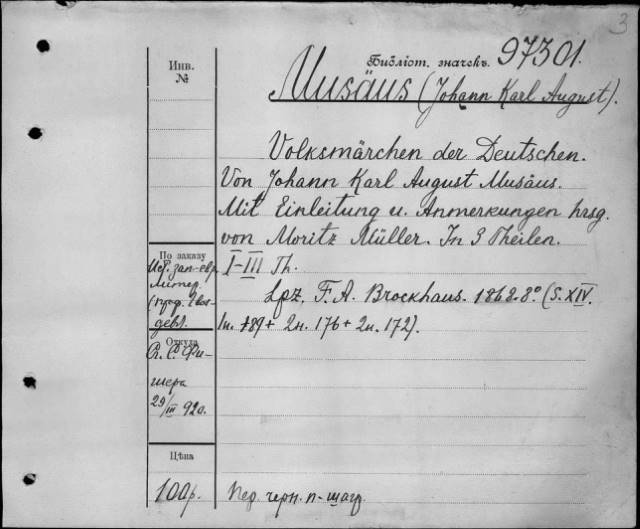 3
Инв.
№
Библіот. значекъ. 97301.
Musäus (Johann Karl August).
Volksmärchen der Deutschen.
Von Johann Karl August Musäus.
Mit Einleitung u. Anmerkungen hrsg.
von Moritz Müller. In 3 Theilen.
I-III Th.
Lpz, F. A. Brockhaus. 1868. 8° (S. XIV.
189 + 2н. 176 + 2н. 172).
По заказу
Ист. зап-евр.
литер.
(проф.
Откуда
Фи-
шера
29/III 920.
Цѣна
100р.
Пер. черн. п-шагр.